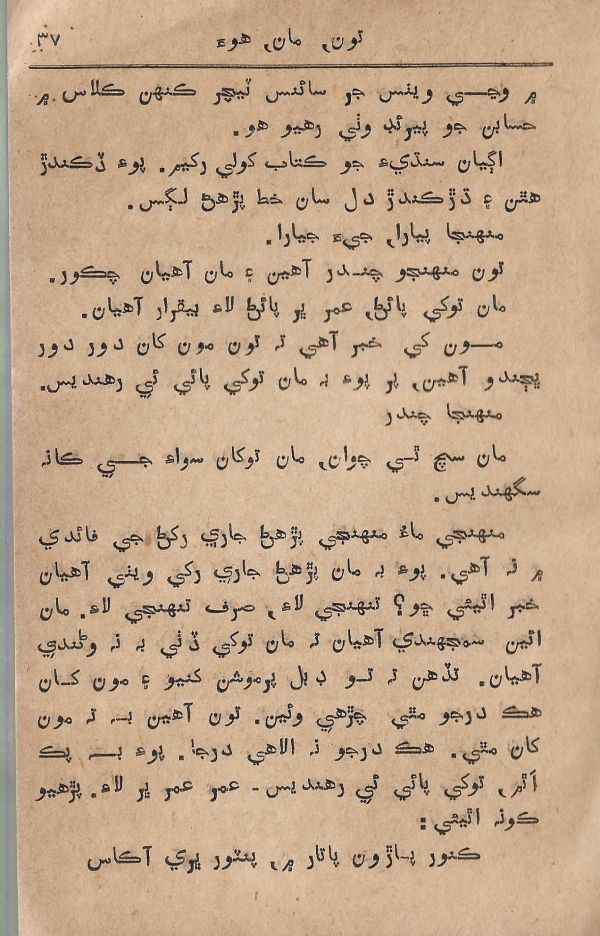 تون، مان، هوءَ ٣٧
۾ وڃــي ويٺس جو سائنس ٽيچر ڪنهن ڪلاس ۾
حسابن جو پيرئڊ وٺي رهيو هو.
اڳيان سنڌيءَ جو ڪتاب کولي رکيم. پوءِ ڏڪندڙ
هٿن ۽ ڌڙڪندڙ دل سان خط پڙهڻ لڳس.
منهنجا پيارا، جيءَ جيارا.
تون منهنجو چنـدر آهين ۽ مان آهيان چڪور.
مان توکي پائڻ، عمر ڀر پائڻ لاءِ بيقرار آهيان.
مــون کي خبر آهي تہ تون مون کان دور دور
ڀڄندو آهين، پر پوءِ بہ مان توکي پائي ئي رهنديس.
منهنجا چندر
مان سچ ٿـي چوان، مان توکان سواءِ جــي ڪانہ
سگهنديس.
منهنجي ماءُ منهنجي پڙهڻ جاري رکڻ جي فائدي
۾ نہ آهي. پوءِ بہ مان پڙهڻ جاري رکي ويٺي آهيان
خبر اٿيئي ڇو؟ تنهنجي لاءِ، صرف تنهنجي لاءِ. مان
ائين سمجهندي آهيان تہ مان توکي ڏٺي بہ نہ وڻندي
آهيان. تڏهن تہ تـو ڊبل پرموشن کنيو ۽ مون کـان
هڪ درجو مٿي چڙهي وئين. تون آهين بـہ تہ مون
کان مٿي. هڪ درجو نہ الاهي درجا. پوءِ بــہ پڪ
اٿم، توکي پائي ئي رهنديس - عمر عمر ڀر لاءِ. پڙهيو
ڪونہ اٿيئي:
ڪنور پـاڙون پاتار ۾، ڀنئور ڀري آڪاس